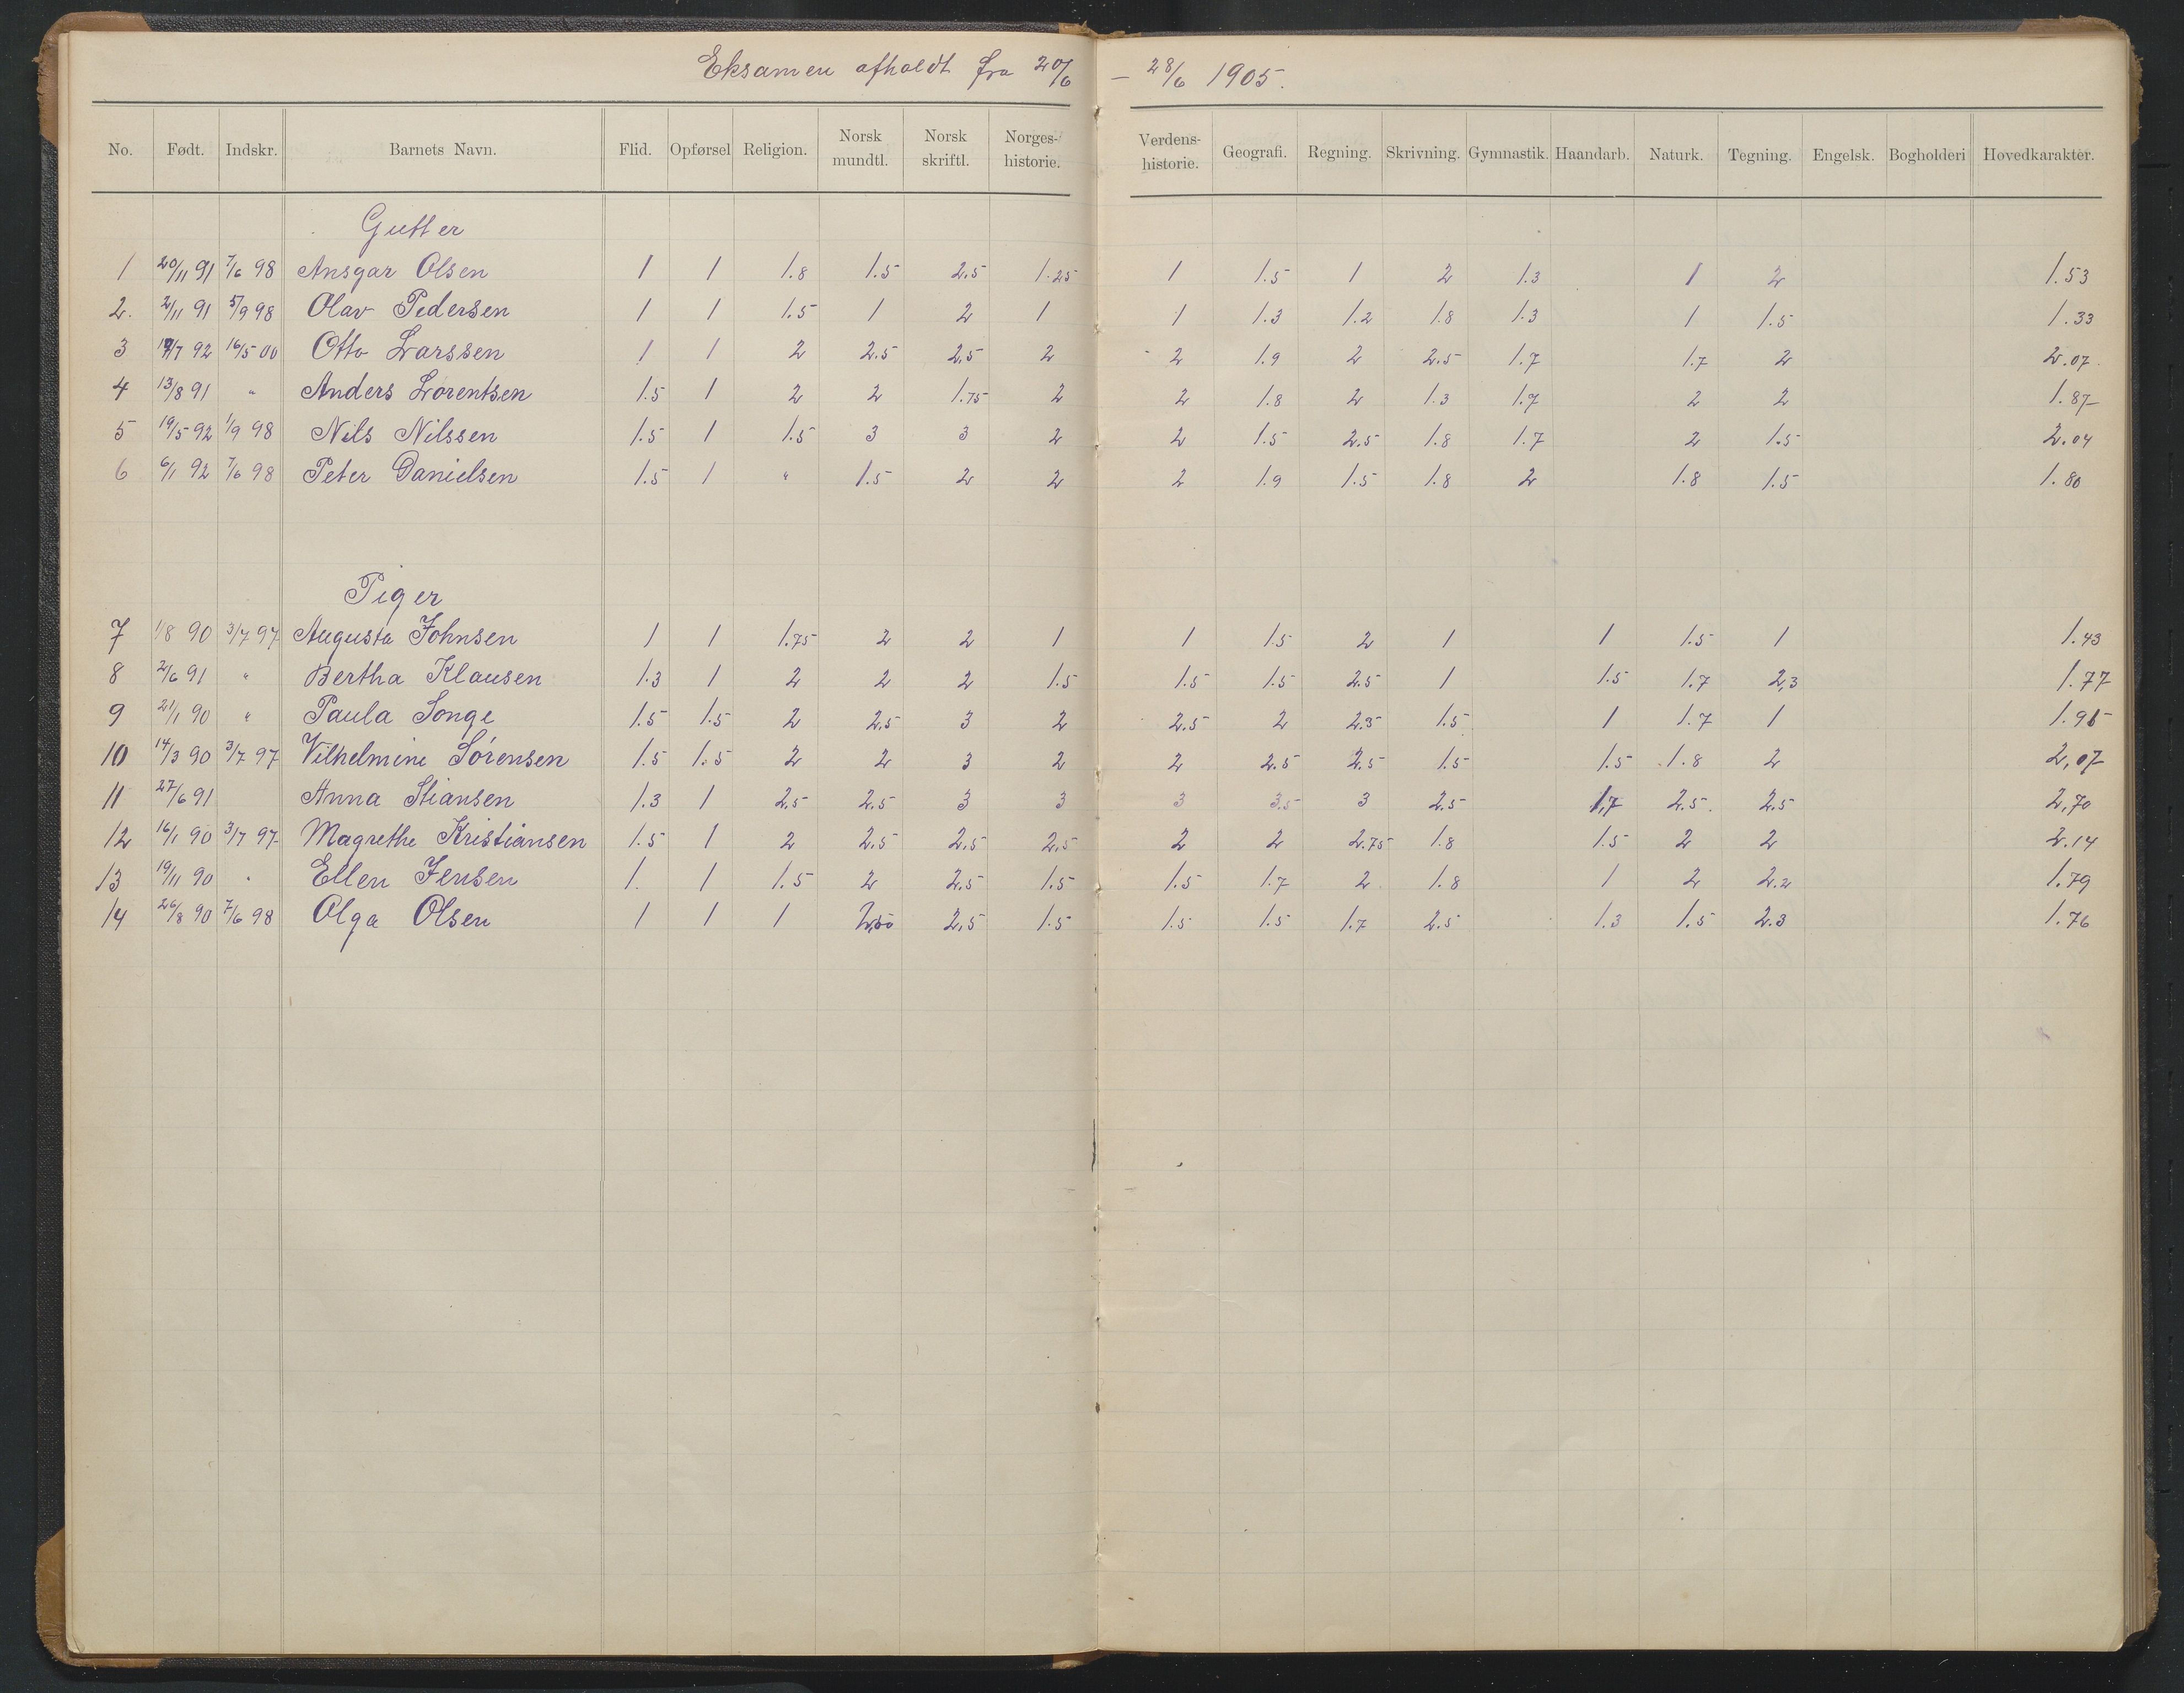 Eksamen afholdt fra 20/6 – 28/6 1905.
No. Født. Indskr. Barnets Navn. Flid. Opførsel Religion. Norsk mundtl. Norsk skriftl. Norges-historie. Verdens-historie. Geografi. Regning. Skrivning. Gymnastik. Haandarb. Naturk. Tegning. Engelsk. Bogholderi Hovedkarakter.
Gutter
1 20/11 91 7/6 98 Ansgar Olsen 1 1 1.8 1.5 2.5 1.25 1 1.5 1 2 1.3 1 2 1.53
2. 2/11 91 5/9 98 Olav Pedersen 1 1 1.5 1 2 1 1 1.3 1.2 1.8 1.3 1 1.5 1.33
3 19/7 92 16/5 00 Otto Larssen 1 1 2 2.5 2.5 2 2 1.9 2 2.5 1.7 1.7 2 2.07.
4 13/8 91 " Anders Lorentsen 1.5 1 2 2 1.75 2 2 1.8 2 1.3 1.7 2 2 1.87
5 19/5 92 1/9 98 Nils Nilssen 1.5 1 1.5 3 3 2 2 1.5 2.5 1.8 1.7 2 1.5 2.04
6 6/1 92 7/6 98 Peter Danielsen 1.5 1 " 1.5 2 2 2 1.9 1.5 1.8 2 1.8 1.5 1.80
Piger
7 1/8 90 3/7 97 Augusta Johnsen 1 1 1.75 2 2 1 1 1.5 2 1 1 1.5 1 1.43
8 2/6 91 " Bertha Klausen 1.3 1 2 2 2 1.5 1.5 1.5 2.5 1 1.5 1.7 2,3 1.77
9 21/1 90 " Paula Songe 1.5 1.5 2 2.5 3 2 2.5 2 2.5 1.5 1 1.7 1 1.95
10 14/3 90 3/7 97 Vilhelmine Sørensen 1.5 1.5 2 2 3 2 2 2.5 2.5 1.5 1.5 1.8 2 2,07
11 27/6 91 Anna Stiansen 1.3 1 2.5 2.5 3 3 3 3.5 3 2.5 1,7 2.5. 2.5 2,70
12 16/1 90 3/7 97 Magrethe Kristiansen 1.5 1 2 2.5 2.5 2.5 2 2 2.75 1.8 1.5 2 2 2.14
13 19/11 90 " Ellen Jensen 1. 1 1.5 2 2.5 1.5 1.5 1.7 2 1.8 1 2 2.2 1.79
14 26/8 90 7/6 98 Olga Olsen 1 1 1 2,50 2,5 1.5 1.5 1.5 1.7 2.5 1.3 1.5 2.3 1.76